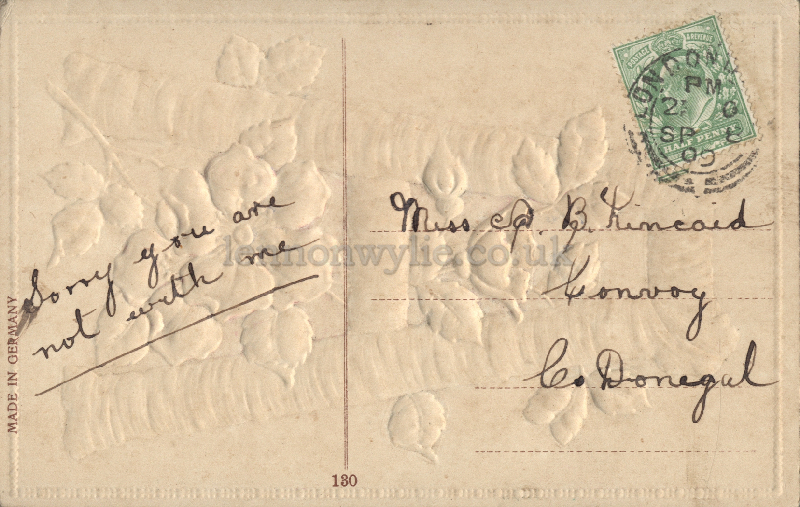 Sorry you are
not with me
MADE IN GERMANY
130
POSTAGE & REVENUE
HALF PENNY
LONDON
PM
SP 8
09
Miss
B. Kincaid
Convoy
Co Donegal
lennonwylie.co.uk